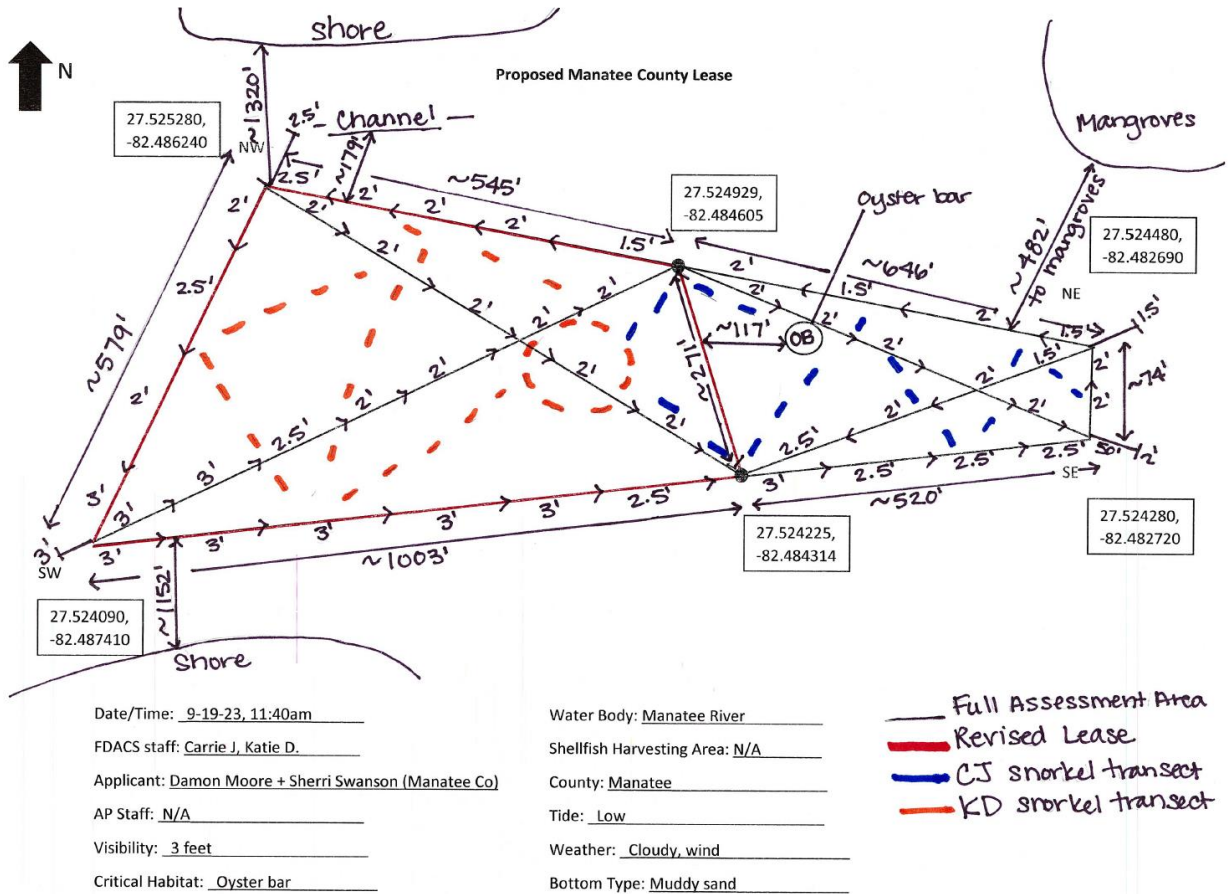 shore
N
Proposed Manatee County Lease
~1320'
27.525280,
-82.486240
NW
2.5'
Channel
2.5'
~179'
~545'
27.524929,
-82.484605
Oyster bar
Mangroves
~482'
to mangroves
27.524480,
-82.482690
NE
~646'
2'
2'
2'
2'
2'
1.5'
2'
1.5'
2'
1.5'
1.5'
2.5'
~579'
2'
2'
2'
2'
2'
2'
OB
~117'
~271'
1.5'
2'
2'
~74'
2'
2'
2'
2'
2.5'
2'
2'
2.5'
3'
3'
3'
3'
3'
3'
3'
3'
2.5'
3'
2.5'
2.5'
2.5'
2'
SE
SW
~1003'
~520'
~1152'
27.524090,
-82.487410
27.524225,
-82.484314
27.524280,
-82.482720
Shore
Date/Time: 9-19-23, 11:40am
FDACS staff: Carrie J, Katie D.
Applicant: Damon Moore + Sherri Swanson (Manatee Co)
AP Staff: N/A
Visibility: 3 feet
Critical Habitat: Oyster bar
Water Body: Manatee River
Shellfish Harvesting Area: N/A
County: Manatee
Tide: Low
Weather: Cloudy, wind
Bottom Type: Muddy sand
Full Assessment Area
Revised Lease
CJ snorkel transect
KD snorkel transect